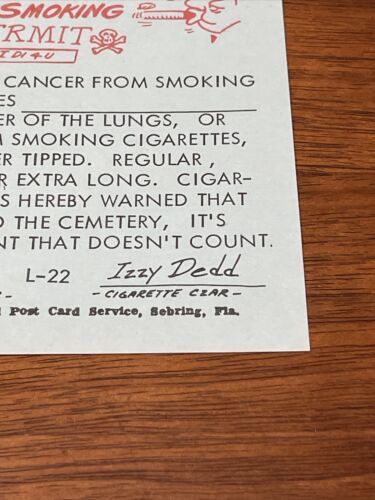 SMOKING
ERMIT
I DI 4U
CANCER FROM SMOKING
ES
ER OF THE LUNGS, OR
SMOKING CIGARETTES,
ER TIPPED. REGULAR,
R EXTRA LONG. CIGAR-
S HEREBY WARNED THAT
O THE CEMETERY, IT'S
NT THAT DOESN'T COUNT.
L-22 Izzy Dedd
- CIGARETTE CZAR -
Post Card Service, Sebring, Fla.